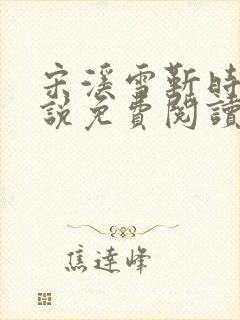 宋溪雪靳時
說免費閱讀
焦達峰